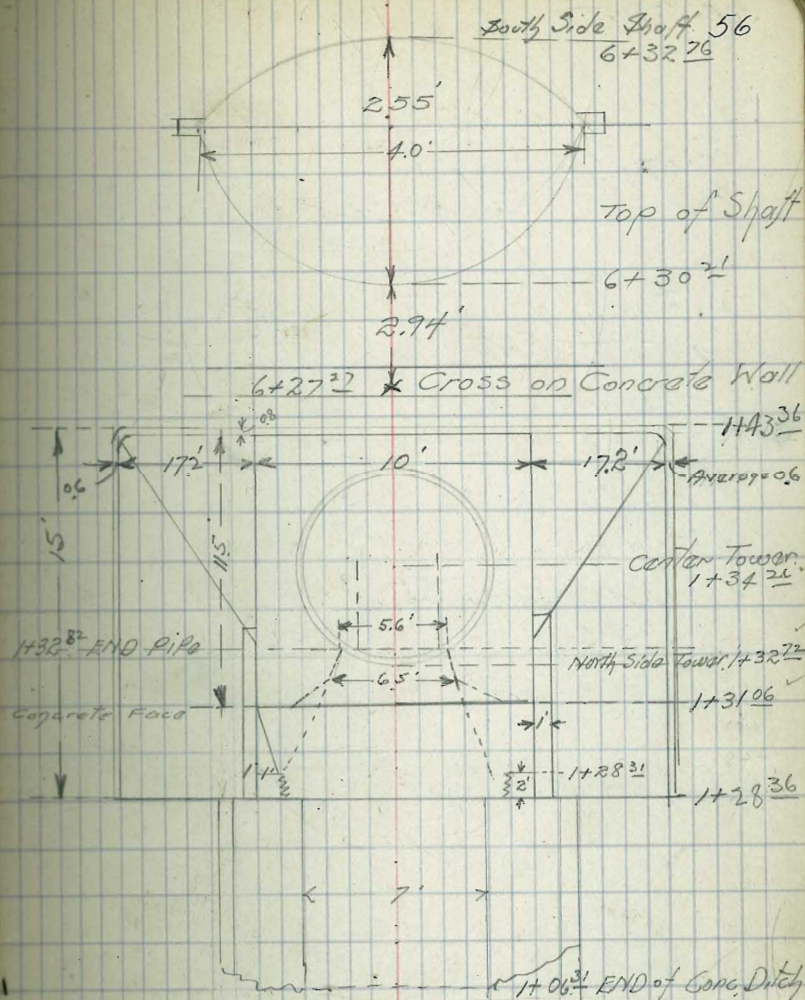 South Side Shaft 56
6+32 76
2.55'
4.0'
Top of Shaft
6+30 21
2.94'
6+27 27 Cross on Concrete Wall
0.8
1+43 36
17.2' 10' 17.2'
0.6 Average=0.6
15' 11.5'
Center Tower
1+34
5.6'
1+32 82 END Pipe
North Side Tower 1+32 72
6.5'
1+31 06
Concrete Face
1'
1' 1+28 31
2'
1+28 36
7'
1+06 31 END of Conc. Ditch